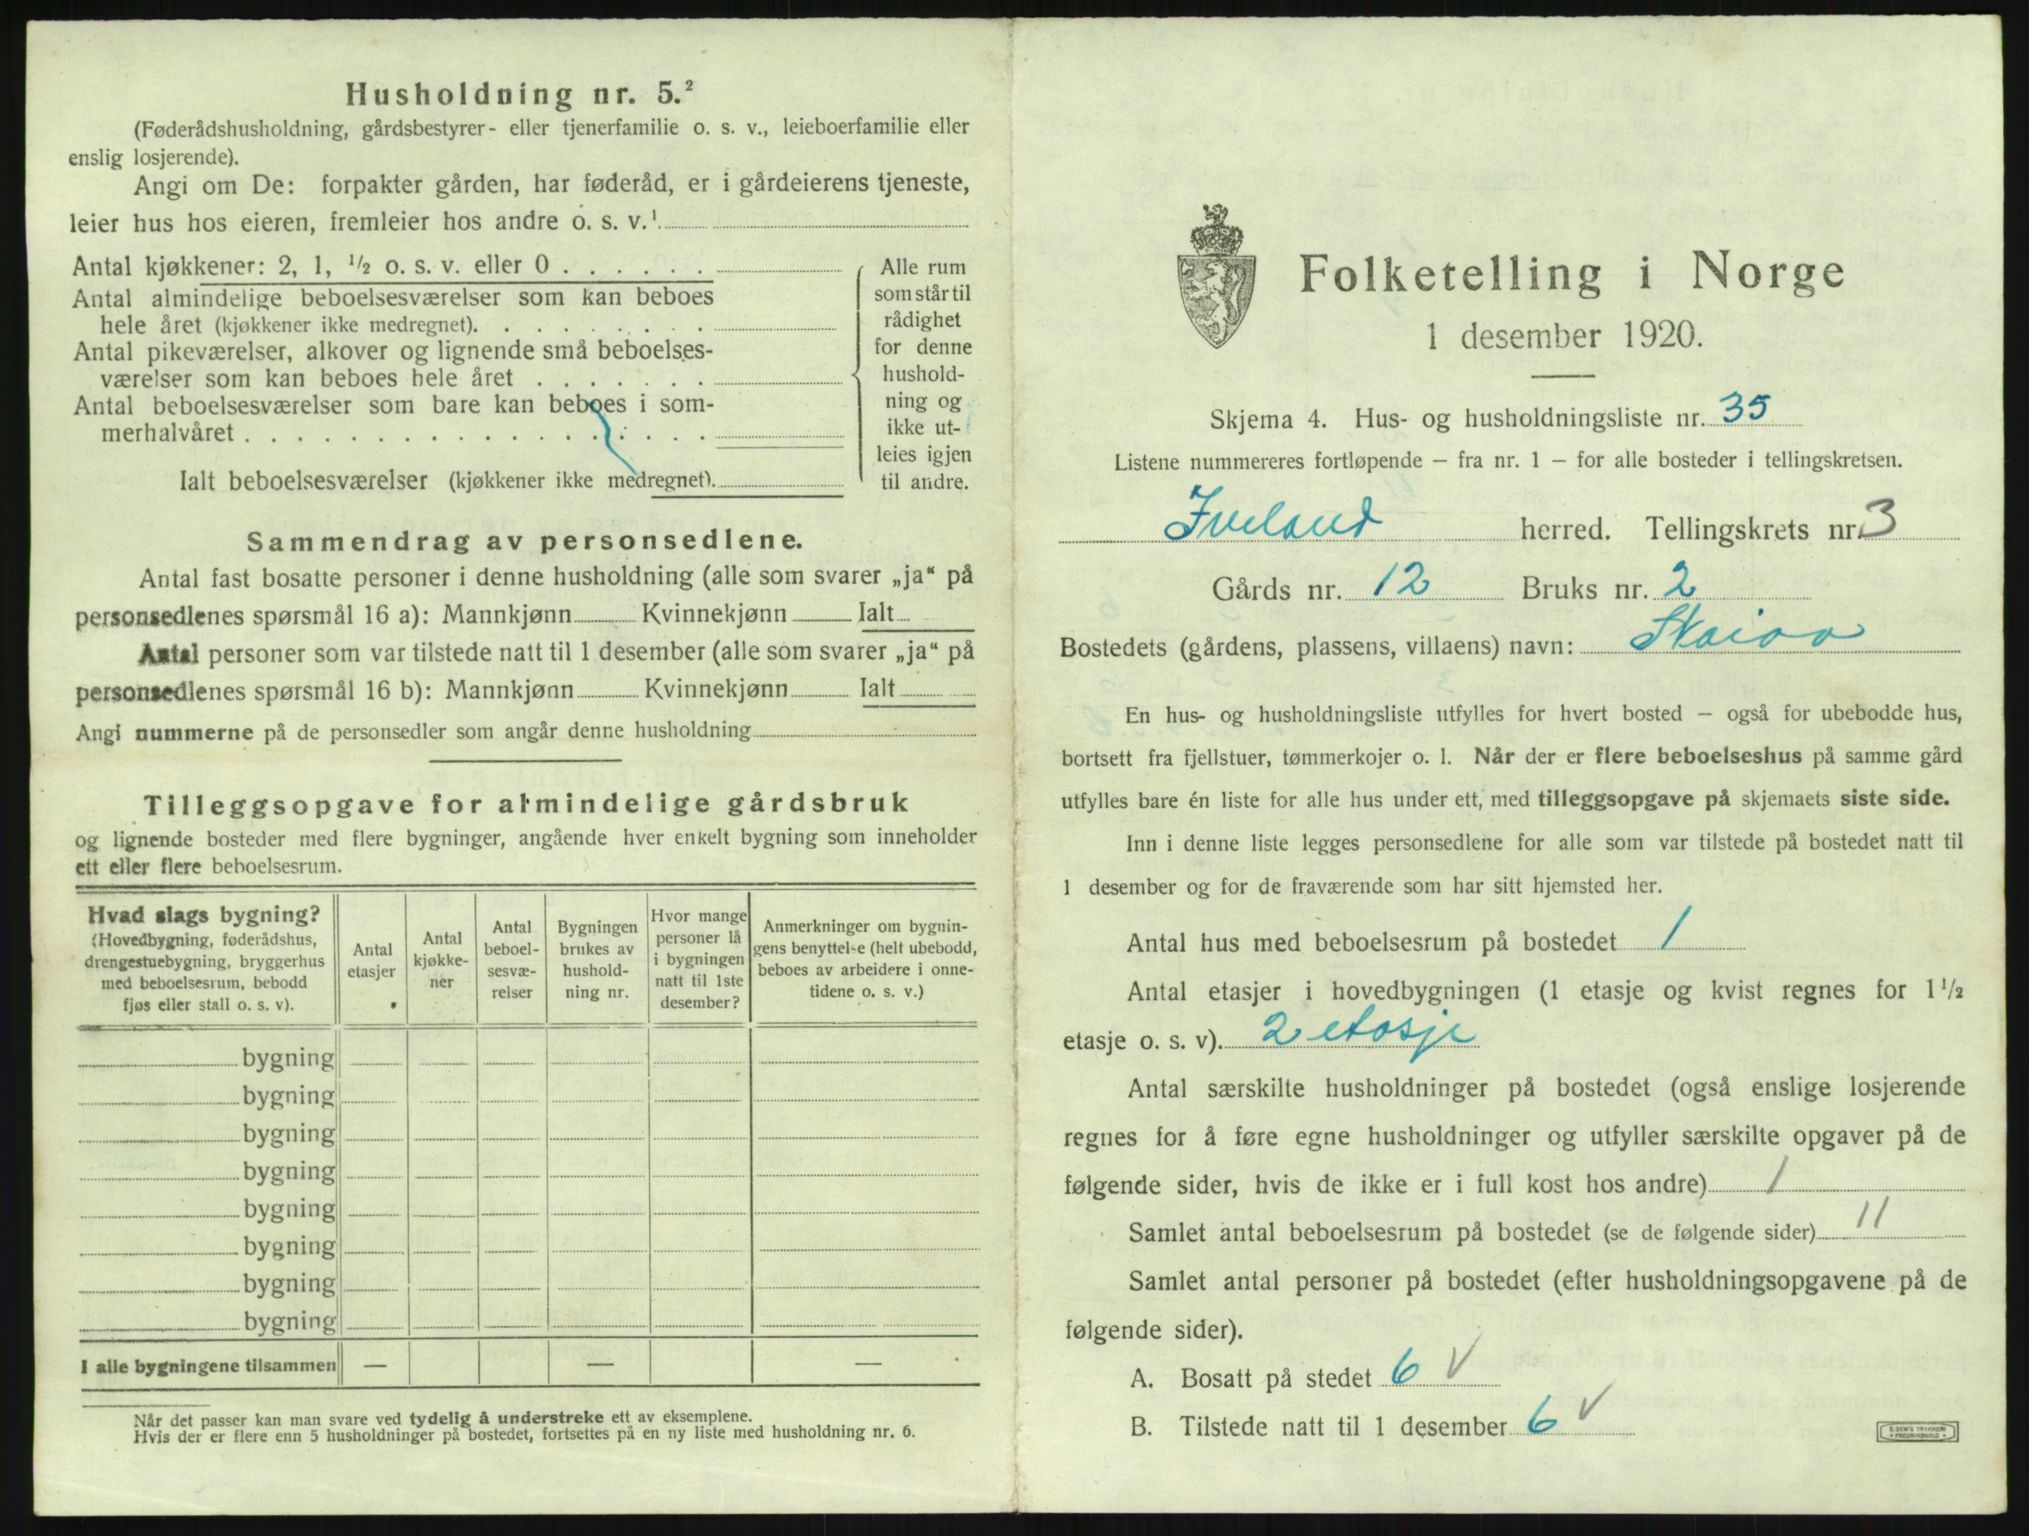 Husholdning nr. 5.²
(Føderådshusholdning, gårdsbestyrer- eller tjenerfamilie o. s. v., leieboerfamilie eller
enslig losjerende).
Angi om De: forpakter gården, har føderåd, er i gårdeierens tjeneste,
leier hus hos eieren, fremleier hos andre o. s. v.¹
Antal kjøkkener: 2, 1, ½ o. s. v. eller 0 . . . . . .
Antal almindelige beboelsesværelser som kan beboes
hele året (kjøkkener ikke medregnet). . . . . . . . .
Antal pikeværelser, alkover og lignende små beboelses-
værelser som kan beboes hele året . . . . . . .
Antal beboelsesværelser som bare kan beboes i som-
merhalvåret . . . . . . . . . . . . . . . . . .
Ialt beboelsesværelser (kjøkkener ikke medregnet).
Alle rum
som står til
rådighet
for denne
hushold-
ning og
ikke ut-
leies igjen
til andre.
Sammendrag av personsedlene.
Antal fast bosatte personer i denne husholdning (alle som svarer „ja“ på
personsedlenes spørsmål 16 a): Mannkjønn Kvinnekjønn Ialt
Antal personer som var tilstede natt til 1 desember (alle som svarer „ja“ på
personsedlenes spørsmål 16 b): Mannkjønn Kvinnekjønn Ialt
Angi nummerne på de personsedler som angår denne husholdning
Tilleggsopgave for almindelige gårdsbruk
og lignende bosteder med flere bygninger, angående hver enkelt bygning som inneholder
ett eller flere beboelsesrum.
Hvad slags bygning?
(Hovedbygning, føderådshus,
drengestuebygning, bryggerhus
med beboelsesrum, bebodd
fjøs eller stall o. s. v).
Antal
etasjer
Antal
kjøkke-
ner
Antal
beboel-
sesvæ-
relser
Bygningen
brukes av
hushold-
ning nr.
Hvor mange
personer lå
i bygningen
natt til 1ste
desember?
Anmerkninger om bygnin-
gens benyttelse (helt ubebodd,
beboes av arbeidere i onne-
tidene o. s. v.)
bygning
bygning
bygning
bygning
bygning
bygning
bygning
bygning
I alle bygningene tilsammen — — —
Når det passer kan man svare ved tydelig å understreke ett av eksemplene.
Hvis der er flere enn 5 husholdninger på bostedet, fortsettes på en ny liste med husholdning nr. 6.
Folketelling i Norge
1 desember 1920.
Skjema 4. Hus- og husholdningsliste nr. 35
Listene nummereres fortløpende — fra nr. 1 — for alle bosteder i tellingskretsen.
Iveland herred. Tellingskrets nr. 3
Gårds nr. 12 Bruks nr. 2
Bostedets (gårdens, plassens, villaens) navn: Skaiaa
En hus- og husholdningsliste utfylles for hvert bosted — også for ubebodde hus,
bortsett fra fjellstuer, tømmerkojer o. l. Når der er flere beboelseshus på samme gård
utfylles bare én liste for alle hus under ett, med tilleggsopgave på skjemaets siste side.
Inn i denne liste legges personsedlene for alle som var tilstede på bostedet natt til
1 desember og for de fraværende som har sitt hjemsted her.
Antal hus med beboelsesrum på bostedet 1
Antal etasjer i hovedbygningen (1 etasje og kvist regnes for 1½
etasje o. s. v). 2 etasje
Antal særskilte husholdninger på bostedet (også enslige losjerende
regnes for å føre egne husholdninger og utfyller særskilte opgaver på de
følgende sider, hvis de ikke er i full kost hos andre) 1
Samlet antal beboelsesrum på bostedet (se de følgende sider) 11
Samlet antal personer på bostedet (efter husholdningsopgavene på de
følgende sider).
A. Bosatt på stedet 6 V
B. Tilstede natt til 1 desember 6 V